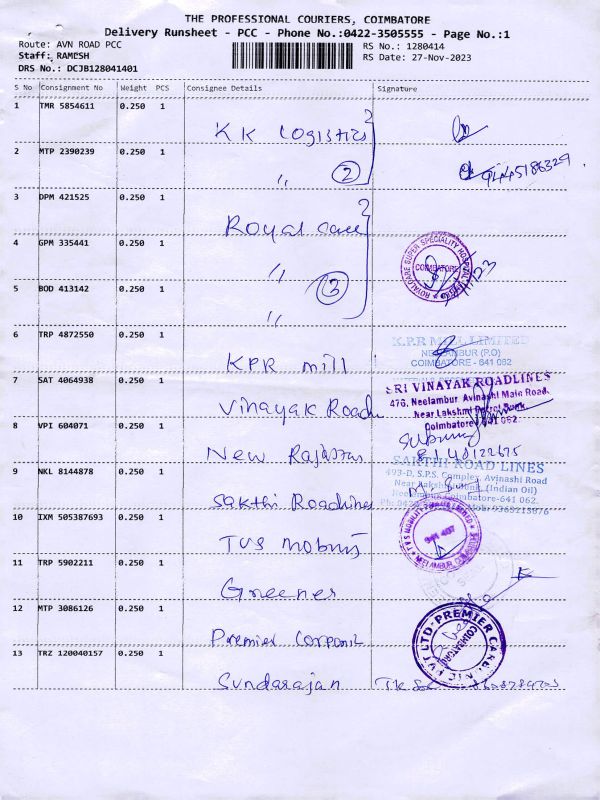 THE PROFESSIONAL COURIERS, COIMBATORE
Delivery Runsheet - PCC - Phone No.:0422-3505555 - Page No.:1
Route: AVN ROAD PCC
RS No.: 1280414
Staff: RAMESH
RS Date: 27-Nov-2023
DRS No.: DCJB128041401
S No Consignment No Weight PCS Consignee Details Signature
1 TMR 5854611 0.250 1 KK Logistics
2 MTP 2390239 0.250 1 " 2 9445186329
3 DPM 421525 0.250 1 Royal care
4 GPM 335441 0.250 1 "
ROYALCARE SUPER SPECIALITY HOSPITAL
COIMBATORE
5 BOD 413142 0.250 1 " 3
6 TRP 4872550 0.250 1 KPR mill
K.P.R MILL LIMITED
NEELAMBUR (P.O)
COIMBATORE - 641 062
7 SAT 4064938 0.250 1 Vinayak Road
SRI VINAYAK ROADLINES
476, Neelambur, Avinashi Main Road,
Near Lakshmi Petrol Bunk,
Coimbatore - 641 062.
8 VPI 604071 0.250 1 New Rajastan
8140122675
9 NKL 8144878 0.250 1 Sakthi Roadlines
SAKTHI ROAD LINES
493-D, S.P.S. Complex, Avinashi Road
Near Lakshmi Bunk, (Indian Oil)
Neelambur, Coimbatore-641 062.
Mob: 9365213876
10 IXM 505387693 0.250 1 TVS Mobility
641 407
11 TRP 5902211 0.250 1 Greenes
12 MTP 3086126 0.250 1 Premier Corpanic
PVT LTD-PREMIER
COIMBATORE
13 TRZ 120040157 0.250 1 Sundarajan